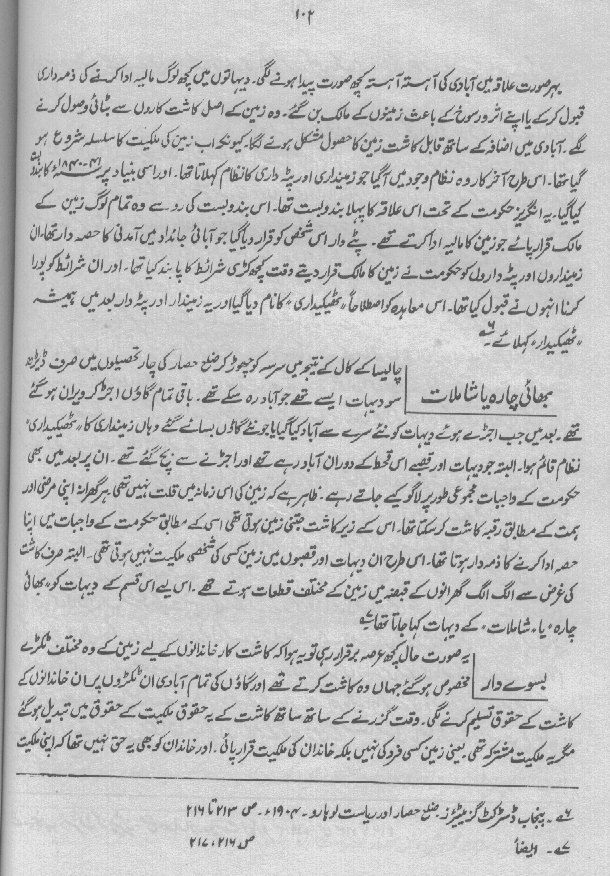 ۱۰۲
بہر صورت علاقہ میں آبادی کی آہستہ آہستہ کچھ صورت پیدا ہونے لگی۔ دیہاتوں میں کچھ لوگ مالیہ ادا کرنے کی ذمہ داری
قبول کر کے یا اپنے اثر و رسوخ کے باعث زمینوں کے مالک بن گئے۔ وہ زمین کے اصل کاشت کاروں سے بٹائی وصول کرنے
لگے۔ آبادی میں اضافہ کے ساتھ قابل کاشت زمین کا حصول مشکل ہونے لگا۔ کیونکہ اب زمین کی ملکیت کا سلسلہ شروع ہو
گیا تھا۔ اس طرح آخر کار وہ نظام وجود میں آ گیا جو زمینداری اور پٹہ داری کا نظام کہلاتا تھا۔ اور اسی بنیاد پر ۴۱-۱۸۴۰ء کا بندوبست
کیا گیا۔ یہ انگریز حکومت کے تحت اس علاقہ کا پہلا بندوبست تھا۔ اس بندوبست کی رو سے وہ تمام لوگ زمین کے
مالک قرار پائے جو زمین کا مالیہ ادا کرتے تھے۔ پٹے دار اس شخص کو قرار دیا گیا جو آبائی جائداد میں آمدنی کا حصہ دار تھا۔ ان
زمینداروں اور پٹہ داروں کو حکومت نے زمین کا مالک قرار دیتے وقت کچھ کڑی شرائط کا پابند کیا تھا۔ اور ان شرائط کو پورا
کرنا انہوں نے قبول کیا تھا۔ اس معاہدہ کو اصطلاحاً "ٹھیکیداری" کا نام دیا گیا اور یہ زمیندار اور پٹہ دار بعد میں ہمیشہ
"ٹھیکیدار" کہلائے۔ ۶؎
بھائی چارہ یا شاملات
چالیسا کے کال کے نتیجہ میں سرسہ کو چھوڑ کر ضلع حصار کی چار تحصیلوں میں صرف ڈیڑھ
سو دیہات ایسے تھے جو آباد رہ سکے تھے۔ باقی تمام گاؤں اجڑ کر ویران ہو گئے
تھے۔ بعد میں جب اجڑے ہوئے دیہات کو نئے سرے سے آباد کیا گیا یا جو نئے گاؤں بسائے گئے وہاں زمینداری کا "ٹھیکیداری"
نظام قائم ہوا۔ البتہ جو دیہات اور قصبے اس قحط کے دوران آباد رہے تھے اور اجڑنے سے بچ گئے تھے۔ ان پر بعد میں بھی
حکومت کے واجبات مجموعی طور پر لاگو کیے جاتے رہے۔ ظاہر ہے کہ زمین کی اس زمانہ میں قلت نہیں تھی ہر گھرانہ اپنی مرضی اور
ہمت کے مطابق رقبہ کاشت کر سکتا تھا۔ اس کے زیر کاشت جتنی زمین ہوتی تھی اسی کے مطابق حکومت کے واجبات میں اپنا
حصہ ادا کرنے کا ذمہ دار ہوتا تھا۔ اس طرح ان دیہات اور قصبوں میں زمین کسی کی شخصی ملکیت نہیں ہوتی تھی۔ البتہ صرف کاشت
کی غرض سے الگ الگ گھرانوں کے قبضہ میں زمین کے مختلف قطعات ہوتے تھے۔ اس لیے اس قسم کے دیہات کو "بھائی
چارہ" یا "شاملات" کے دیہات کہا جاتا تھا۔ ۷؎
بسوے دار
یہ صورت حال کچھ عرصہ برقرار رہی تو یہ ہوا کہ کاشت کار خاندانوں کے لیے زمین کے وہ مختلف ٹکڑے
مخصوص ہو گئے جہاں وہ کاشت کرتے تھے اور گاؤں کی تمام آبادی ان ٹکڑوں پر ان خاندانوں کے
کاشت کے حقوق تسلیم کرنے لگی۔ وقت گزرنے کے ساتھ ساتھ کاشت کے یہ حقوق ملکیت کے حقوق میں تبدیل ہو گئے
مگر یہ ملکیت مشترکہ تھی۔ یعنی زمین کسی فرد کی نہیں بلکہ خاندان کی ملکیت قرار پائی۔ اور خاندان کو بھی یہ حق نہیں تھا کہ اپنی ملکیت
۶؎۔ پنجاب ڈسٹرکٹ گزیٹیئرز۔ ضلع حصار اور ریاست لوہارو۔ ۱۹۰۴ء۔ ص ۲۱۳ تا ۲۱۶
۷؎۔ ایضاً ص ۲۱۶، ۲۱۷